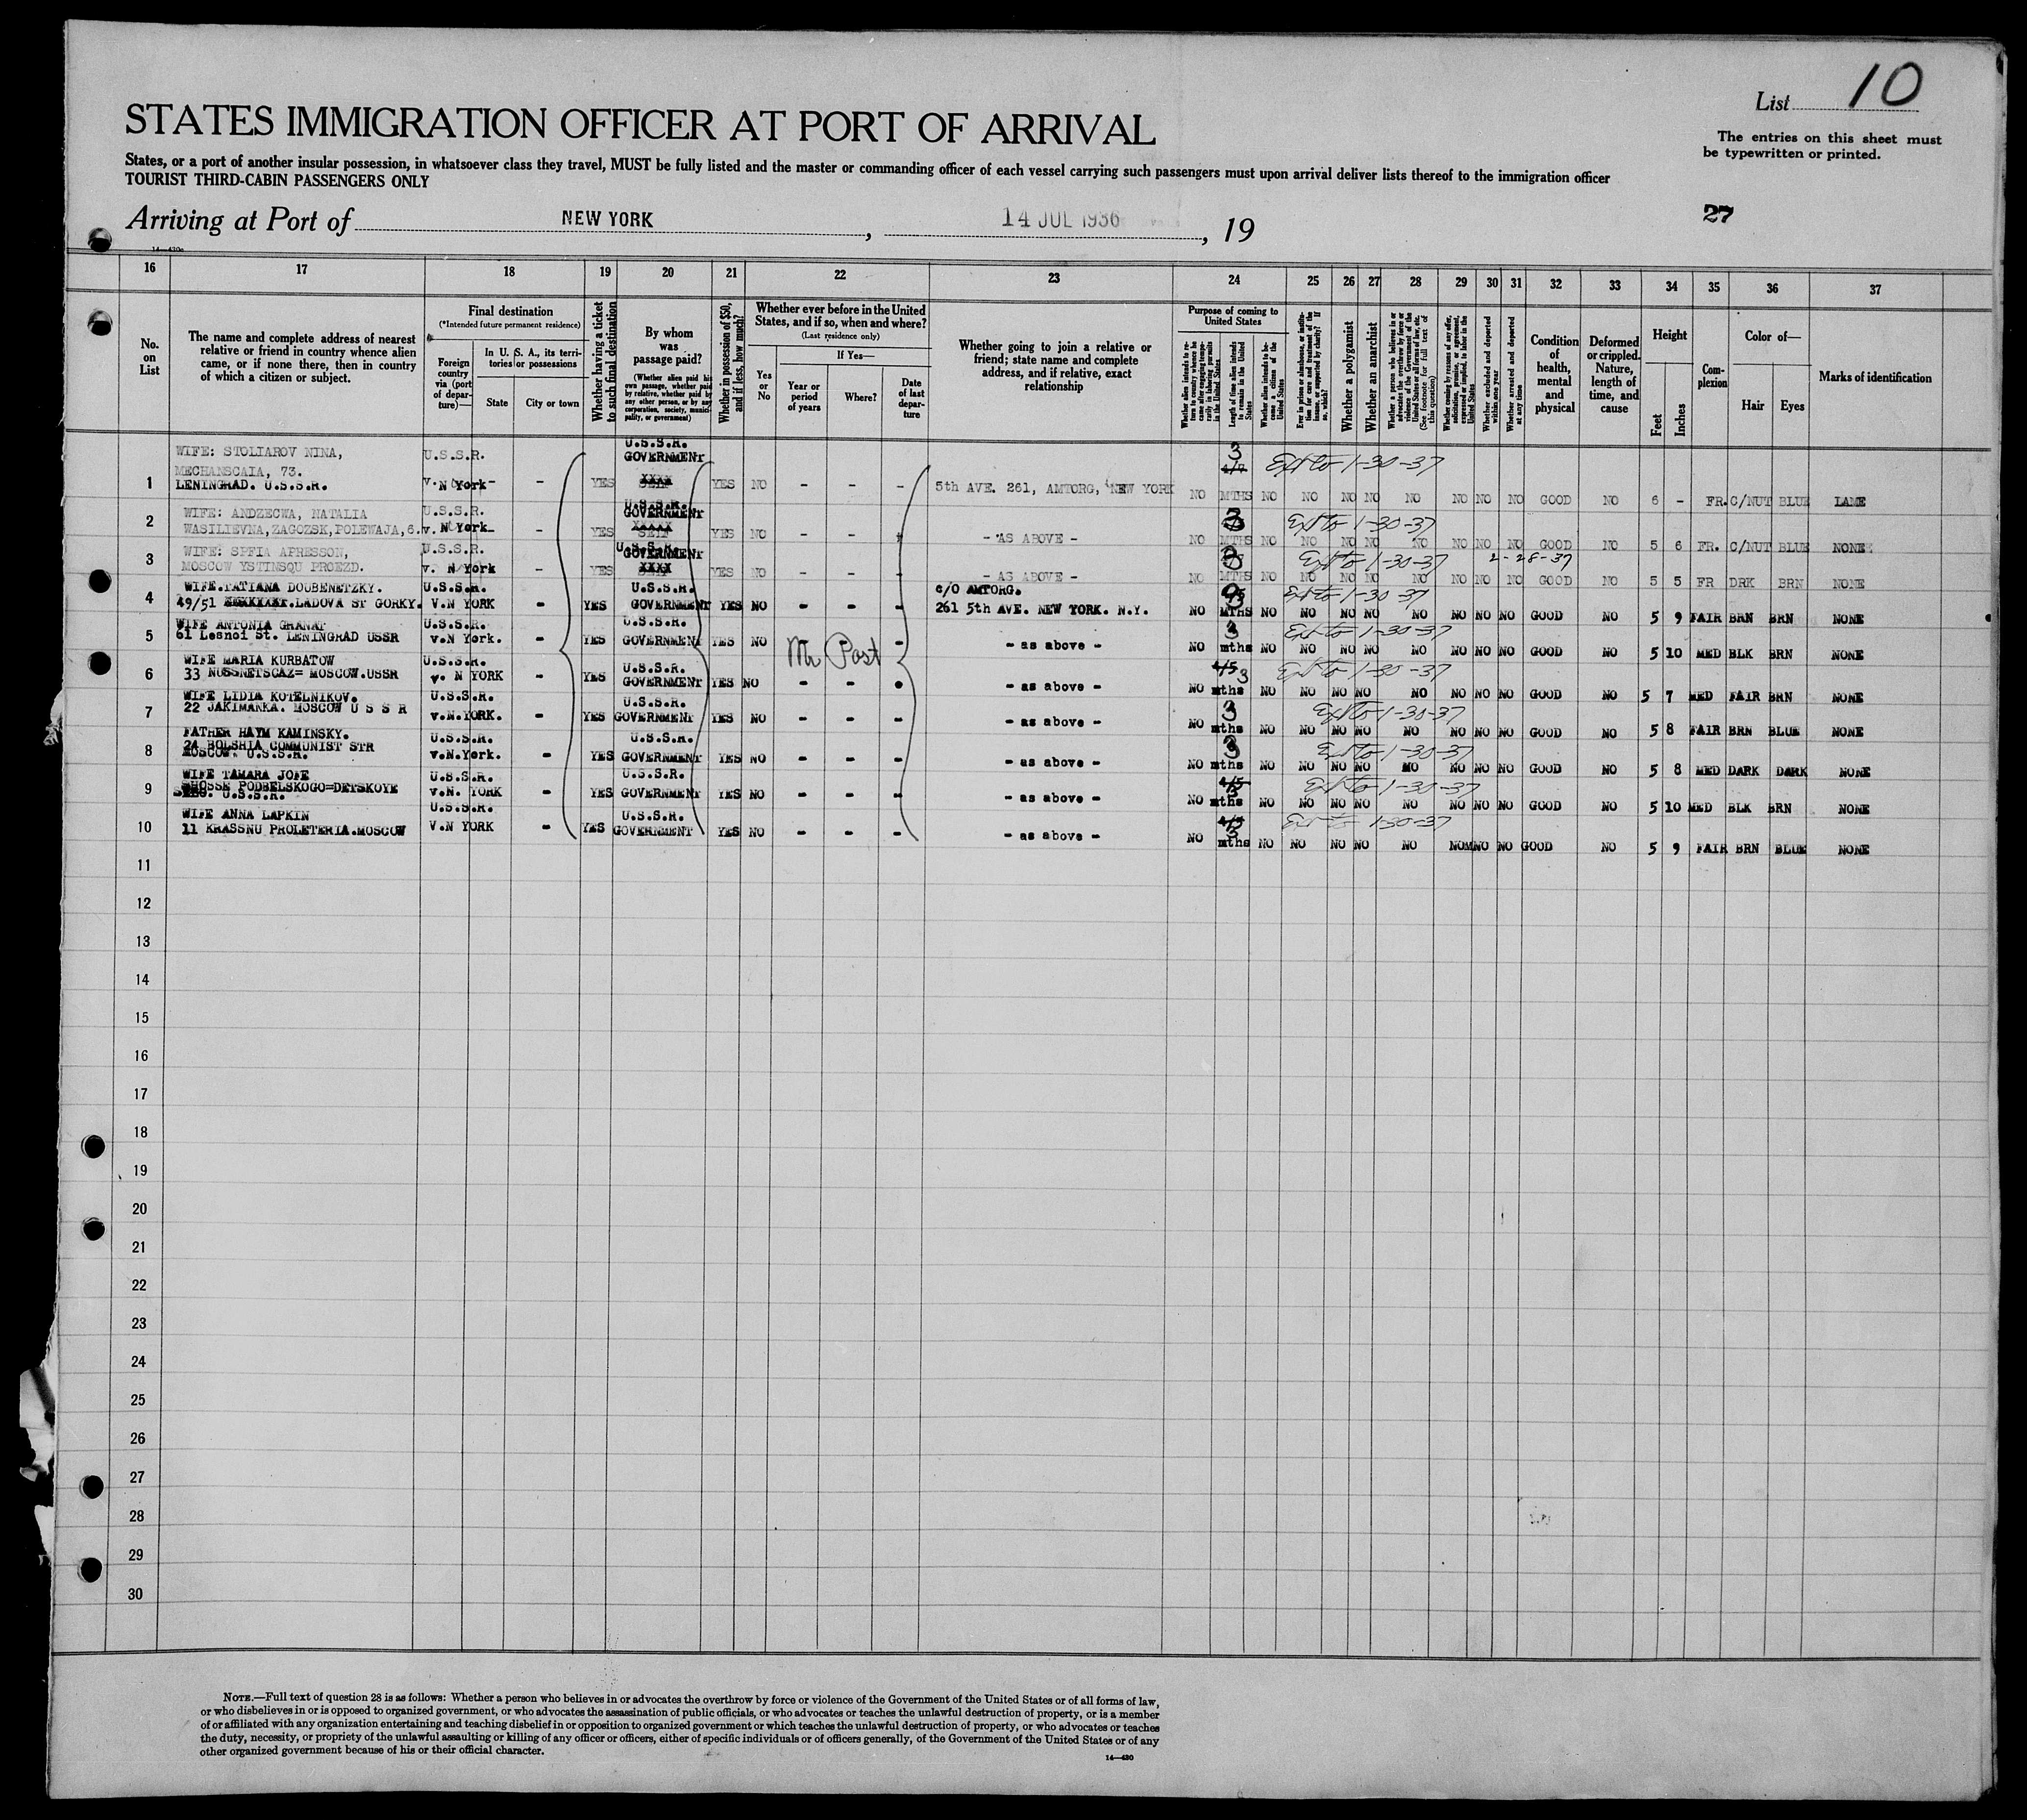 List 10
STATES IMMIGRATION OFFICER AT PORT OF ARRIVAL
The entries on this sheet must
be typewritten or printed.
States, or a port of another insular possession, in whatsoever class they travel, MUST be fully listed and the master or commanding officer of each vessel carrying such passengers must upon arrival deliver lists thereof to the immigration officer
TOURIST THIRD-CABIN PASSENGERS ONLY
27
Arriving at Port of NEW YORK, 14 JUL 1936, 19
16 17 18 19 20 21 22 23 24 25 26 27 28 29 30 31 32 33 34 35 36 37
No.
on
List
The name and complete address of nearest
relative or friend in country whence alien
came, or if none there, then in country
of which a citizen or subject.
Final destination
(*Intended future permanent residence)
Foreign
country
via (port
of depar-
ture)—
In U. S. A., its terri-
tories or possessions
State
City or town
Whether having a ticket
to such final destination
By whom
was
passage paid?
(Whether alien paid his
own passage, whether paid
by relative, whether paid by
any other person, or by any
corporation, society, munici-
pality, or government)
Whether in possession of $50,
and if less, how much?
Whether ever before in the United
States, and if so, when and where?
(Last residence only)
Yes
or
No
If Yes—
Year or
period
of years
Where?
Date
of last
depar-
ture
Whether going to join a relative or
friend; state name and complete
address, and if relative, exact
relationship
Purpose of coming to
United States
Length of time alien intends
to remain in the United
States
Whether alien intends to be-
come a citizen of the
United States
Whether a polygamist
Whether an anarchist
(See footnote for full text of
this question)
Whether excluded and deported
within one year
Whether arrested and deported
at any time
Condition
of
health,
mental
and
physical
Deformed
or crippled.
Nature,
length of
time, and
cause
Height
Feet
Inches
Com-
plexion
Color of—
Hair
Eyes
Marks of identification
WIFE: STOLIAROV NINA, U.S.S.R. U.S.S.R. GOVERNMENT 3 Ext to 1-30-37
MECHANSCAIA, 73.
1 LENINGRAD. U.S.S.R. v. N York - YES YES NO - - - 5th AVE. 261, AMTORG, NEW YORK NO MTHS NO NO NO NO NO NO NO NO GOOD NO 6 - FR. C/NUT BLUE LAME
2 WIFE: ANDZECWA, NATALIA U.S.S.R. U.S.S.R. GOVERNMENT 3 Ext to 1-30-37
WASILIEVNA,ZAGOZSK,POLEWAJA,6. v. N York - YES YES NO - - - AS ABOVE - NO MTHS NO NO NO NO NO NO NO NO GOOD NO 5 6 FR. C/NUT BLUE NONE
3 WIFE: SPFIA APRESSON, U.S.S.R. U.S.S.R. GOVERNMENT 3 Ext to 1-30-37 2-28-37
MOSCOW YSTINSQU PROEZD. v. N York - YES YES NO - - - AS ABOVE - NO MTHS NO NO NO NO NO NO NO NO GOOD NO 5 5 FR DRK BRN NONE
4 WIFE.TATIANA DOUBENETZKY. U.S.S.R. U.S.S.R. c/O AMTORG. Ext to 1-30-37
49/51 LADOVA ST GORKY. V.N YORK - YES GOVERNMENT YES NO - - - 261 5th AVE. NEW YORK. N.Y. NO MTHS NO NO NO NO NO NO NO NO GOOD NO 5 9 FAIR BRN BRN NONE
5 WIFE ANTONIA GRANAT U.S.S.R. U.S.S.R. 3 Ext to 1-30-37
61 Lesnoi St. LENINGRAD USSR v.N York. - YES GOVERNMENT YES NO Mr Post - - as above - NO mths NO NO NO NO NO NO NO NO GOOD NO 5 10 MED BLK BRN NONE
6 WIFE MARIA KURBATOW U.S.S.R. U.S.S.R. 3 Ext to 1-30-37
33 NOSSNETSCAZ= MOSCOW.USSR v. N YORK - YES GOVERNMENT YES NO - - - as above - NO mths NO NO NO NO NO NO NO NO GOOD NO 5 7 MED FAIR BRN NONE
7 WIFE LIDIA KOTELNIKOV. U.S.S.R. U.S.S.R. 3 Ext to 1-30-37
22 JAKIMANKA. MOSCOW U S S R v.N.YORK. - YES GOVERNMENT YES NO - - - - as above - NO mths NO NO NO NO NO NO NO NO GOOD NO 5 8 FAIR BRN BLUE NONE
8 FATHER HAYM KAMINSKY. U.S.S.R. U.S.S.R. 3 Ext to 1-30-37
24 BOLSHIA COMMUNIST STR
MOSCOW. U.S.S.R. v.N.York. - YES GOVERNMENT YES NO - - - - as above - NO mths NO NO NO NO NO NO NO NO GOOD NO 5 8 MED DARK DARK NONE
9 WIFE TAMARA JOFE U.S.S.R. U.S.S.R. 3 Ext to 1-30-37
SHOSSE PODBELSKOGO=DETSKOYE
U.S.S.R. v.N. YORK - YES GOVERNMENT YES NO - - - - as above - NO mths NO NO NO NO NO NO NO NO GOOD NO 5 10 MED BLK BRN NONE
10 WIFE ANNA LAPKIN U.S.S.R. U.S.S.R. 3 Ext to 1-30-37
11 KRASSNU PROLETERIA.MOSCOW V.N YORK - YES GOVERNMENT YES NO - - - - as above - NO mths NO NO NO NO NO NO NO GOOD NO 5 9 FAIR BRN BLUE NONE
11
12
13
14
15
16
17
18
19
20
21
22
23
24
25
26
27
28
29
30
NOTE.—Full text of question 28 is as follows: Whether a person who believes in or advocates the overthrow by force or violence of the Government of the United States or of all forms of law,
or who disbelieves in or is opposed to organized government, or who advocates the assassination of public officials, or who advocates or teaches the unlawful destruction of property, or is a member
of or affiliated with any organization entertaining and teaching disbelief in or opposition to organized government or which teaches the unlawful destruction of property, or who advocates or teaches
the duty, necessity, or propriety of the unlawful assaulting or killing of any officer or officers, either of specific individuals or of officers generally, of the Government of the United States or of any
other organized government because of his or their official character.
14—430